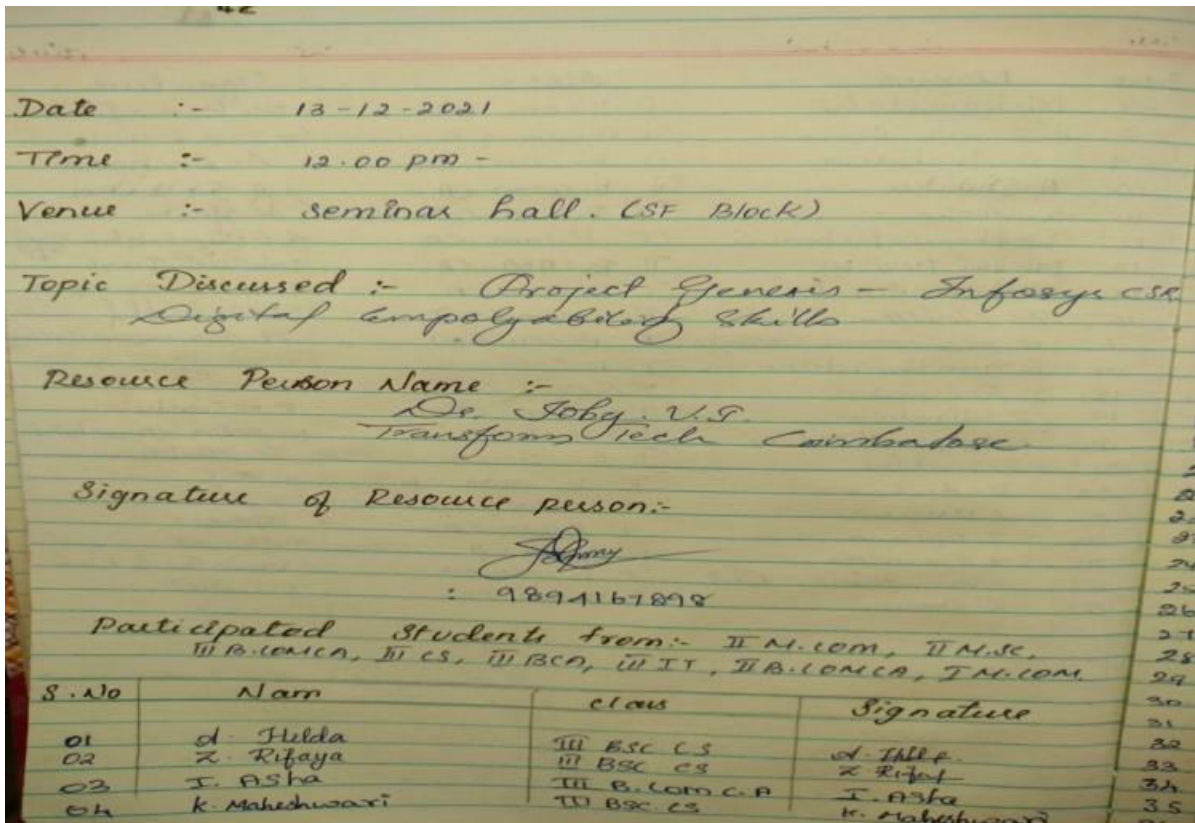 42
Date :- 13-12-2021
Time :- 12.00 pm -
Venue :- Seminar hall. (SF Block)
Topic Discussed :- Project Genesis - Infosys CSR
Digital Empolyability Skills
Resource Person Name :-
Dr. Joby. V.T.
Transform Tech Coimbatore
Signature of Resource person:-
: 9894167898
Participated Students from:- II M.com, II M.SC,
III B.COMCA, III CS, III BCA, III IT, II B.COMCA, I M.COM.
S.No Nam class Signature
01 A. Hilda III BSC CS
02 Z. Rifaya III BSC CS Z. Rifay
03 I. Asha III B.com C.A I. Asha
04 K. Maheshwari III BSC.CS K. Maheshwari
24
25
26
27
28
29
30
31
32
33
34
35